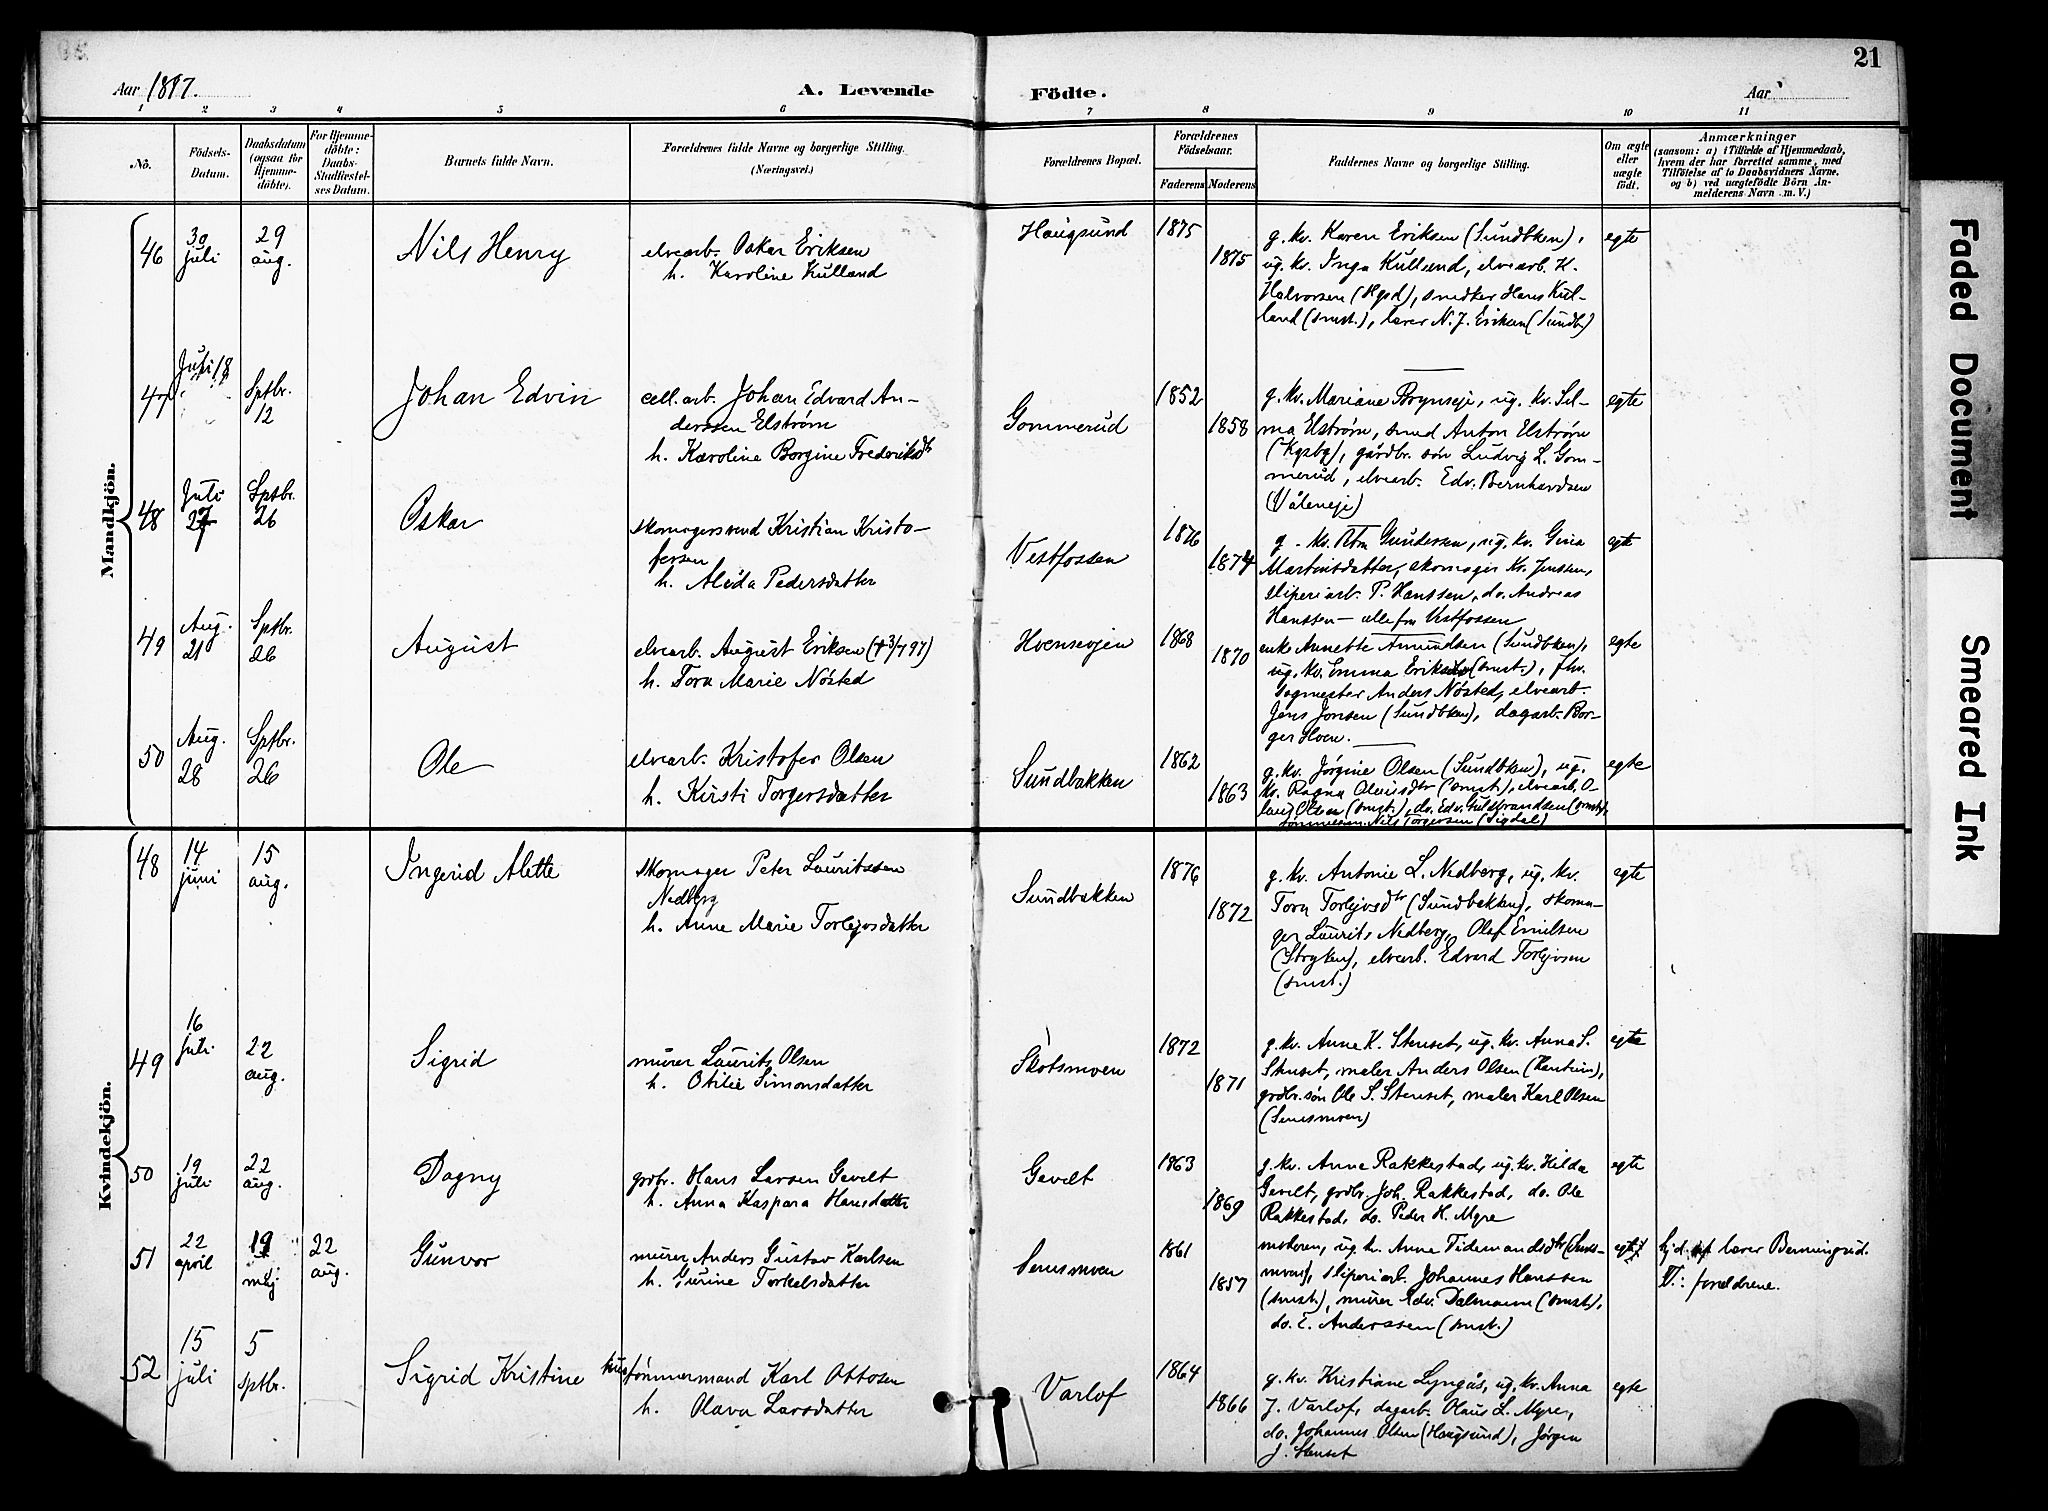 21
Aar 1897.
A. Levende Födte.
Aar
1 2 3 4 5 6 7 8 9 10 11
No.
Födsels-Datum.
Daabsdatum (ogsaa for Hjemme-döbte).
For Hjemme-döbte: Daabs-Stadfæstel-ses Datum.
Barnets fulde Navn.
Forældrenes fulde Navne og borgerlige Stilling.
(Næringsvei.)
Forældrenes Bopæl.
Forældrenes Födselsaar.
Faderens Moderens
Faddernes Navne og borgerlige Stilling.
Om ægte eller uægte födt.
Anmærkninger
(saasom: a) i Tilfælde af Hjemmedaab,
hvem der har forrettet samme, med
Tilföielse af to Daabsvidners Navne,
og b) ved uægtefödte Börn An-
melderens Navn m. V.)
Mandkjön.
46
30 juli
29 aug.
Nils Henry
elvearb. Oskar Eriksen
h. Karoline Kulland
Haugsund
1875
1875
g. kv. Karen Eriksen (Sundbken),
ug. kv. Inga Kulland, elvearb. K.
Halvorsen (Hgsd), snedker Hans Kul-
land (smst.), lærer N. J. Eriksen (Sundb.)
egte
47
Juli 18
Sptbr. 12
Johan Edvin
cell. arb. Johan Edvard An-
derssen Elstrøm
h. Karoline Borgine Fredriksdtr
Gommerud
1852
1858
g. kv. Mariane Brynseje, ug. kv. Sel-
ma Elstrøm, smed Anton Elstrøm
(Kgsbg), gårdbr. søn Ludvig L. Gom-
merud, elvearb. Edv. Bernhardsen
(Våleneje)
egte
48
Juli 27
Sptbr. 26
Oskar
skomagersvend Kristian Kristo-
fersen
h. Alida Pedersdatter
Vestfossen
1876
1874
g. kv. Gundersen, ug. kv. Gina
Martinsdatter, skomager Kr. Jenssen,
sliperiarb. P. Hanssen, do. Andreas
Hanssen - alle fra Vestfossen
egte
49
Aug. 21
Sptbr. 26
August
elvearb. August Eriksen (+3/7 97)
h. Torn Marie Nøsted
Hoensvejen
1868
1870
enke Annette Amundsen (Sundbken),
ug. kv. Emma Eriksdtr (smst.), fhv.
sagmester Anders Nøsted, elvearb.
Jens Jonsen (Sundbken), dagarb. Bor-
ger Hoen.
egte
50
Aug. 28
Sptbr. 26
Ole
elvearb. Kristofer Olsen
h. Kirsti Torgersdatter
Sundbakken
1862
1863
g. kv. Jørgine Olsen (Sundbken), ug.
kv. Ragna Olausdtr (smst.), elvearb. O-
laus Olsen (smst.), do. Edv. Guldbrandsen (smst.),
Nils Torgersen (Sigdal)
egte
Kvindekjön.
48
14 juni
15 aug.
Ingerid Alette
skomager Peter Lauritssen
Nedberg
h. Anne Marie Torleivsdatter
Sundbakken
1876
1872
g. kv. Antonie L. Nedberg, ug. kv.
Torn Torleivsdtr (Sundbakken), skoma-
ger Laurits Nedberg, Olaf Emilsen
(Stryken), elvearb. Edvard Torleivsen
(smst.)
egte
49
16 juli
22 aug.
Sigrid
murer Laurits Olsen
h. Otilie Simonsdatter
Skotsmoen
1872
1871
g. kv. Anne K. Stenset, ug. kv. Anna S.
Stenset, maler Anders Olsen
grdbr. søn Ole S. Stenset, maler Karl Olsen
(Semsmoen)
egte
50
19 juli
22 aug.
Dagny
grdbr. Hans Larsen Gevelt
h. Anna Kaspara Hansdatter
Gevelt
1863
1869
g. kv. Anne Rakkestad, ug. kv. Hilda
Gevelt, grdbr. Joh. Rakkestad, do. Ole
Rakkestad, do. Peder H. Myre
egte
51
22 april
19 mej
22 aug.
Gunvor
murer Anders Gustav Karlsen
h. Gurine Torkelsdatter
Semsmoen
1861
1857
moderen, ug. k. Anne Tidemandsdtr (Sems-
moen), sliperiarb. Johannes Hanssen
(smst.), murer Edv. Dalmann (smst.),
do. E. Anderssen (smst.)
egte
hjd. af lærer Berningrud.
V.: foreldrene.
52
15 juli
5 sptbr.
Sigrid Kristine
hustømmermand Karl Ottosen
h. Olava Larsdatter
Varlof
1864
1866
g. kv. Kristiane Lyngås, ug. kv. Anna
J. Varlof, dagarb. Olaus L. Myre,
do. Johannes Olsen (Haugsund), Jørgen
J. Stenset
egte
Faded Document
Smeared Ink